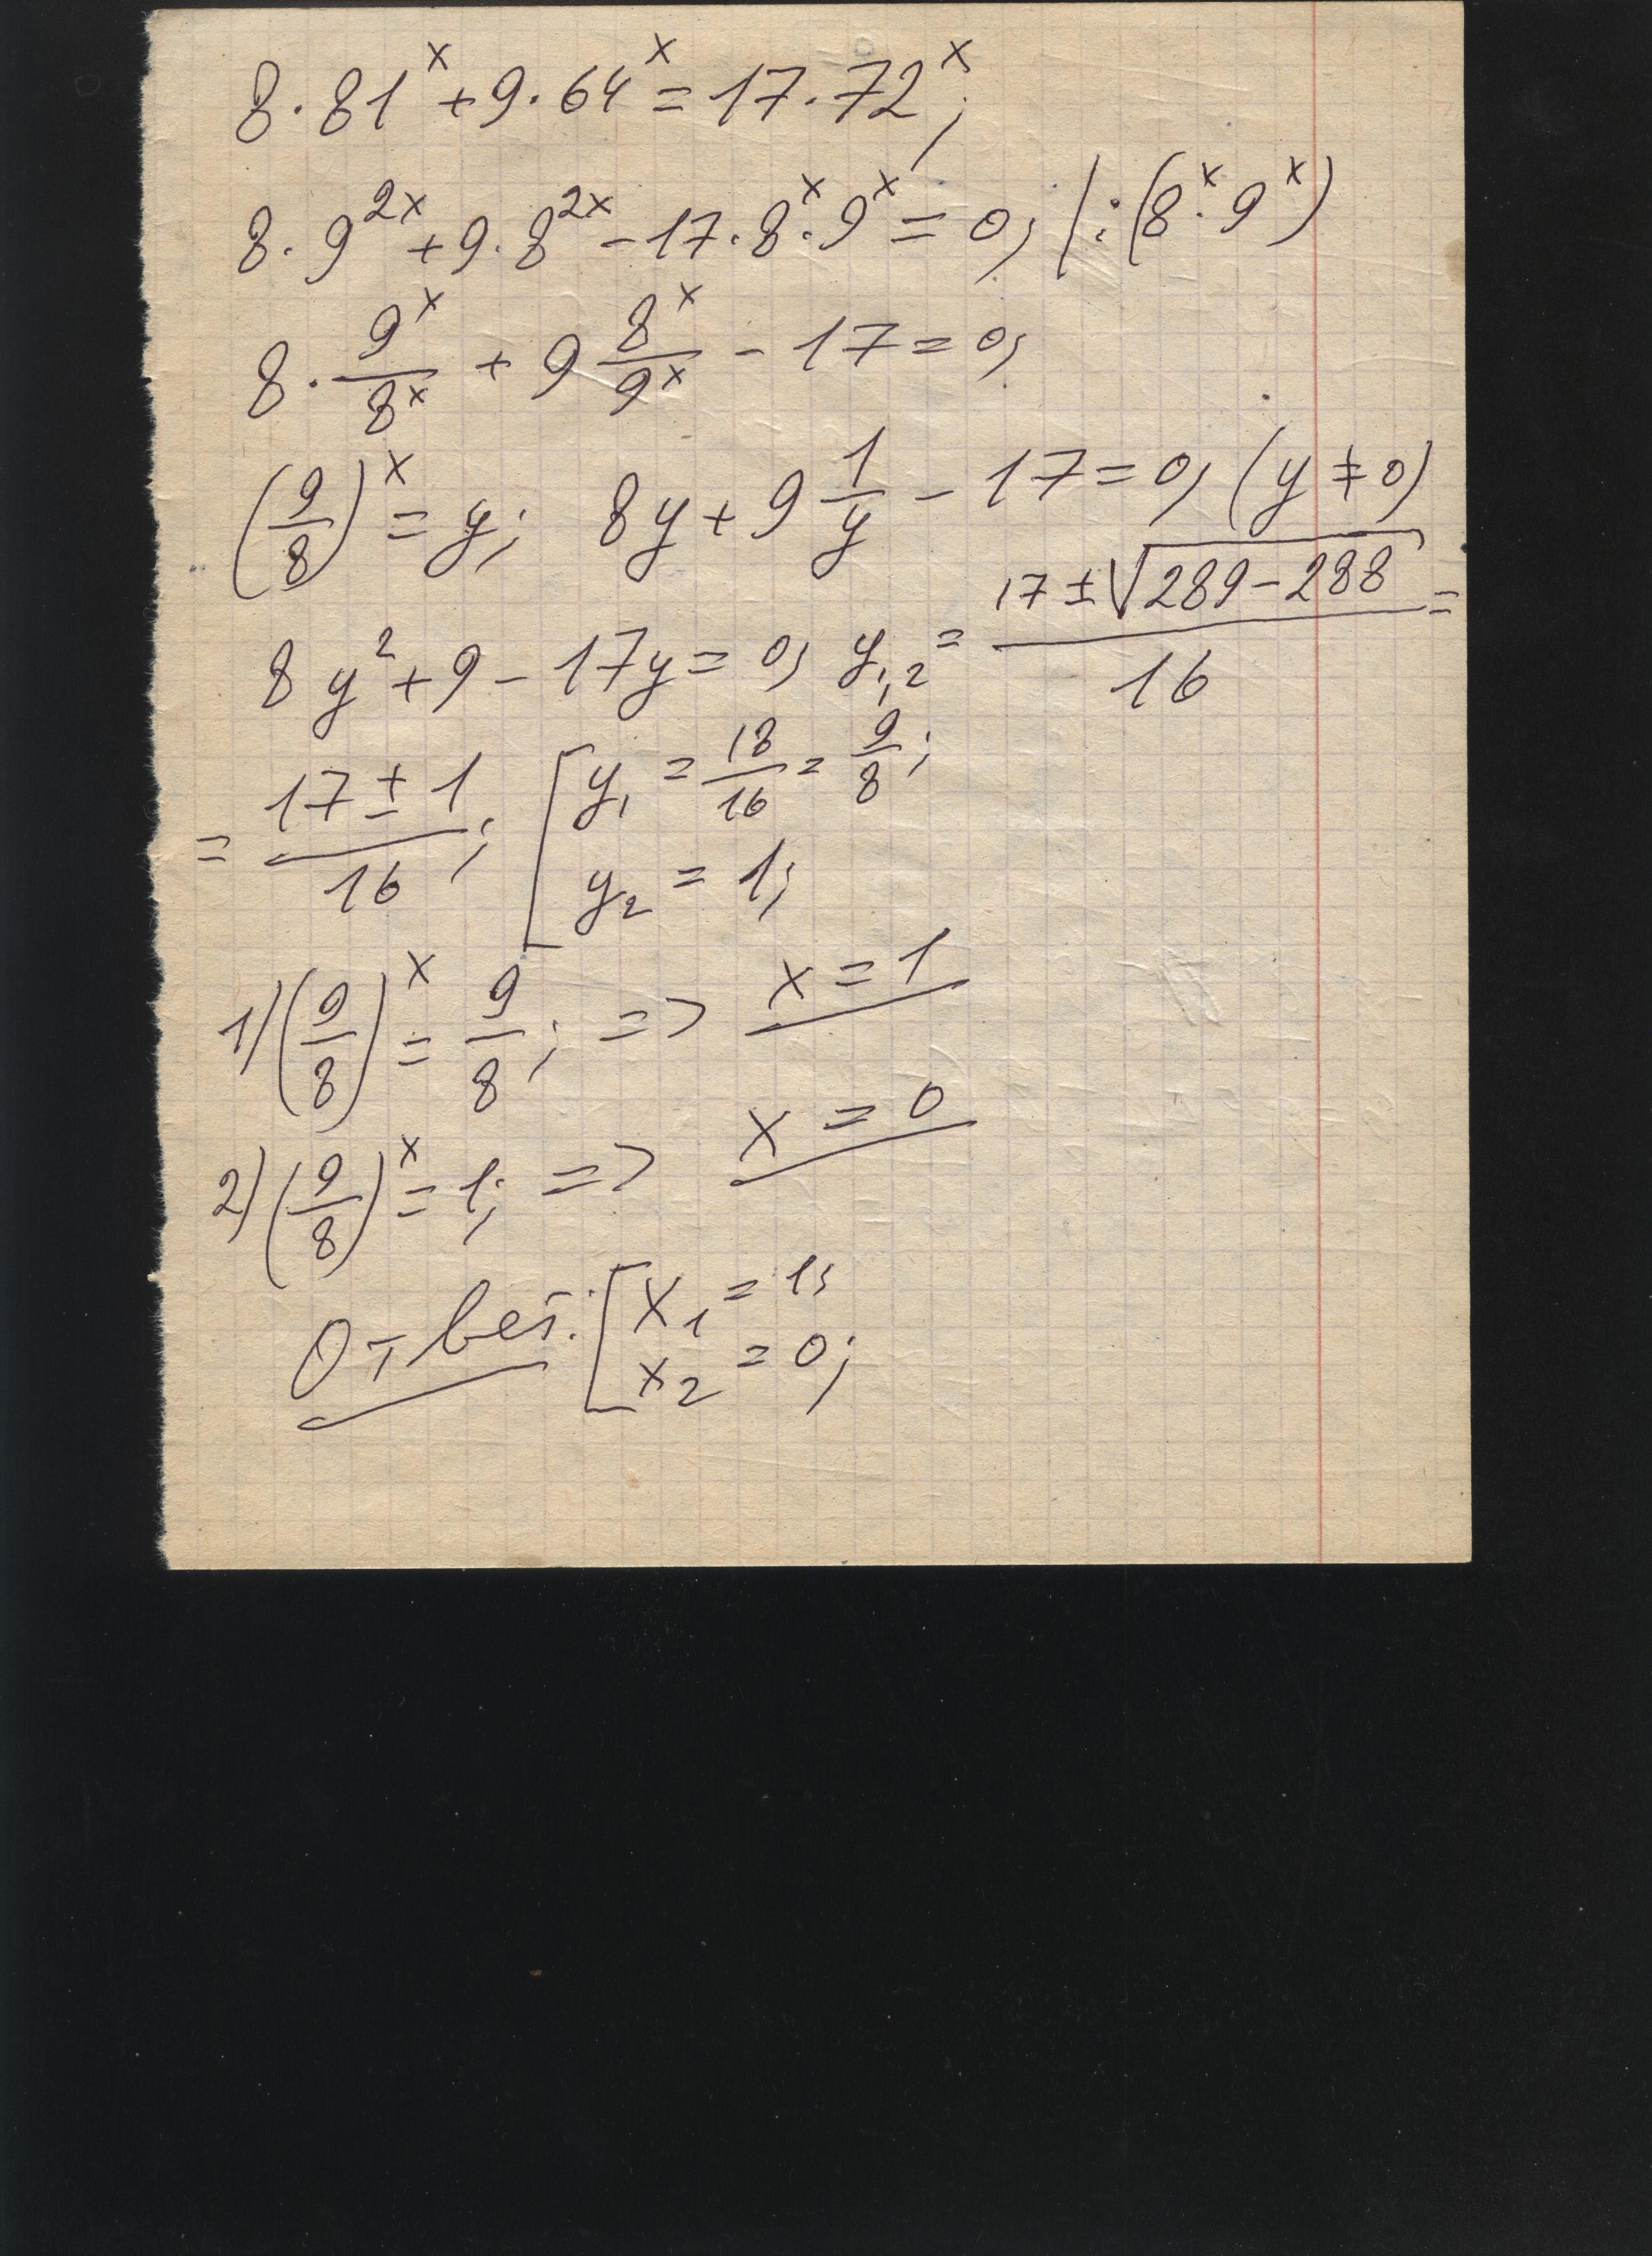 8·81^x + 9·64^x = 17·72^x;
8·9^{2x} + 9·8^{2x} − 17·8^x·9^x = 0; | :(8^x·9^x)
8·\frac{9^x}{8^x} + 9\frac{8^x}{9^x} − 17 = 0;
(\frac{9}{8})^x = y; 8y + 9\frac{1}{y} − 17 = 0; (y ≠ 0)
8y² + 9 − 17y = 0; y_{1,2} = \frac{17 ± \sqrt{289 − 288}}{16} =
= \frac{17 ± 1}{16}; [ y_1 = \frac{18}{16} = \frac{9}{8};
y_2 = 1;
1) (\frac{9}{8})^x = \frac{9}{8}; => x = 1
2) (\frac{9}{8})^x = 1; => x = 0
Ответ: [ x_1 = 1;
x_2 = 0;